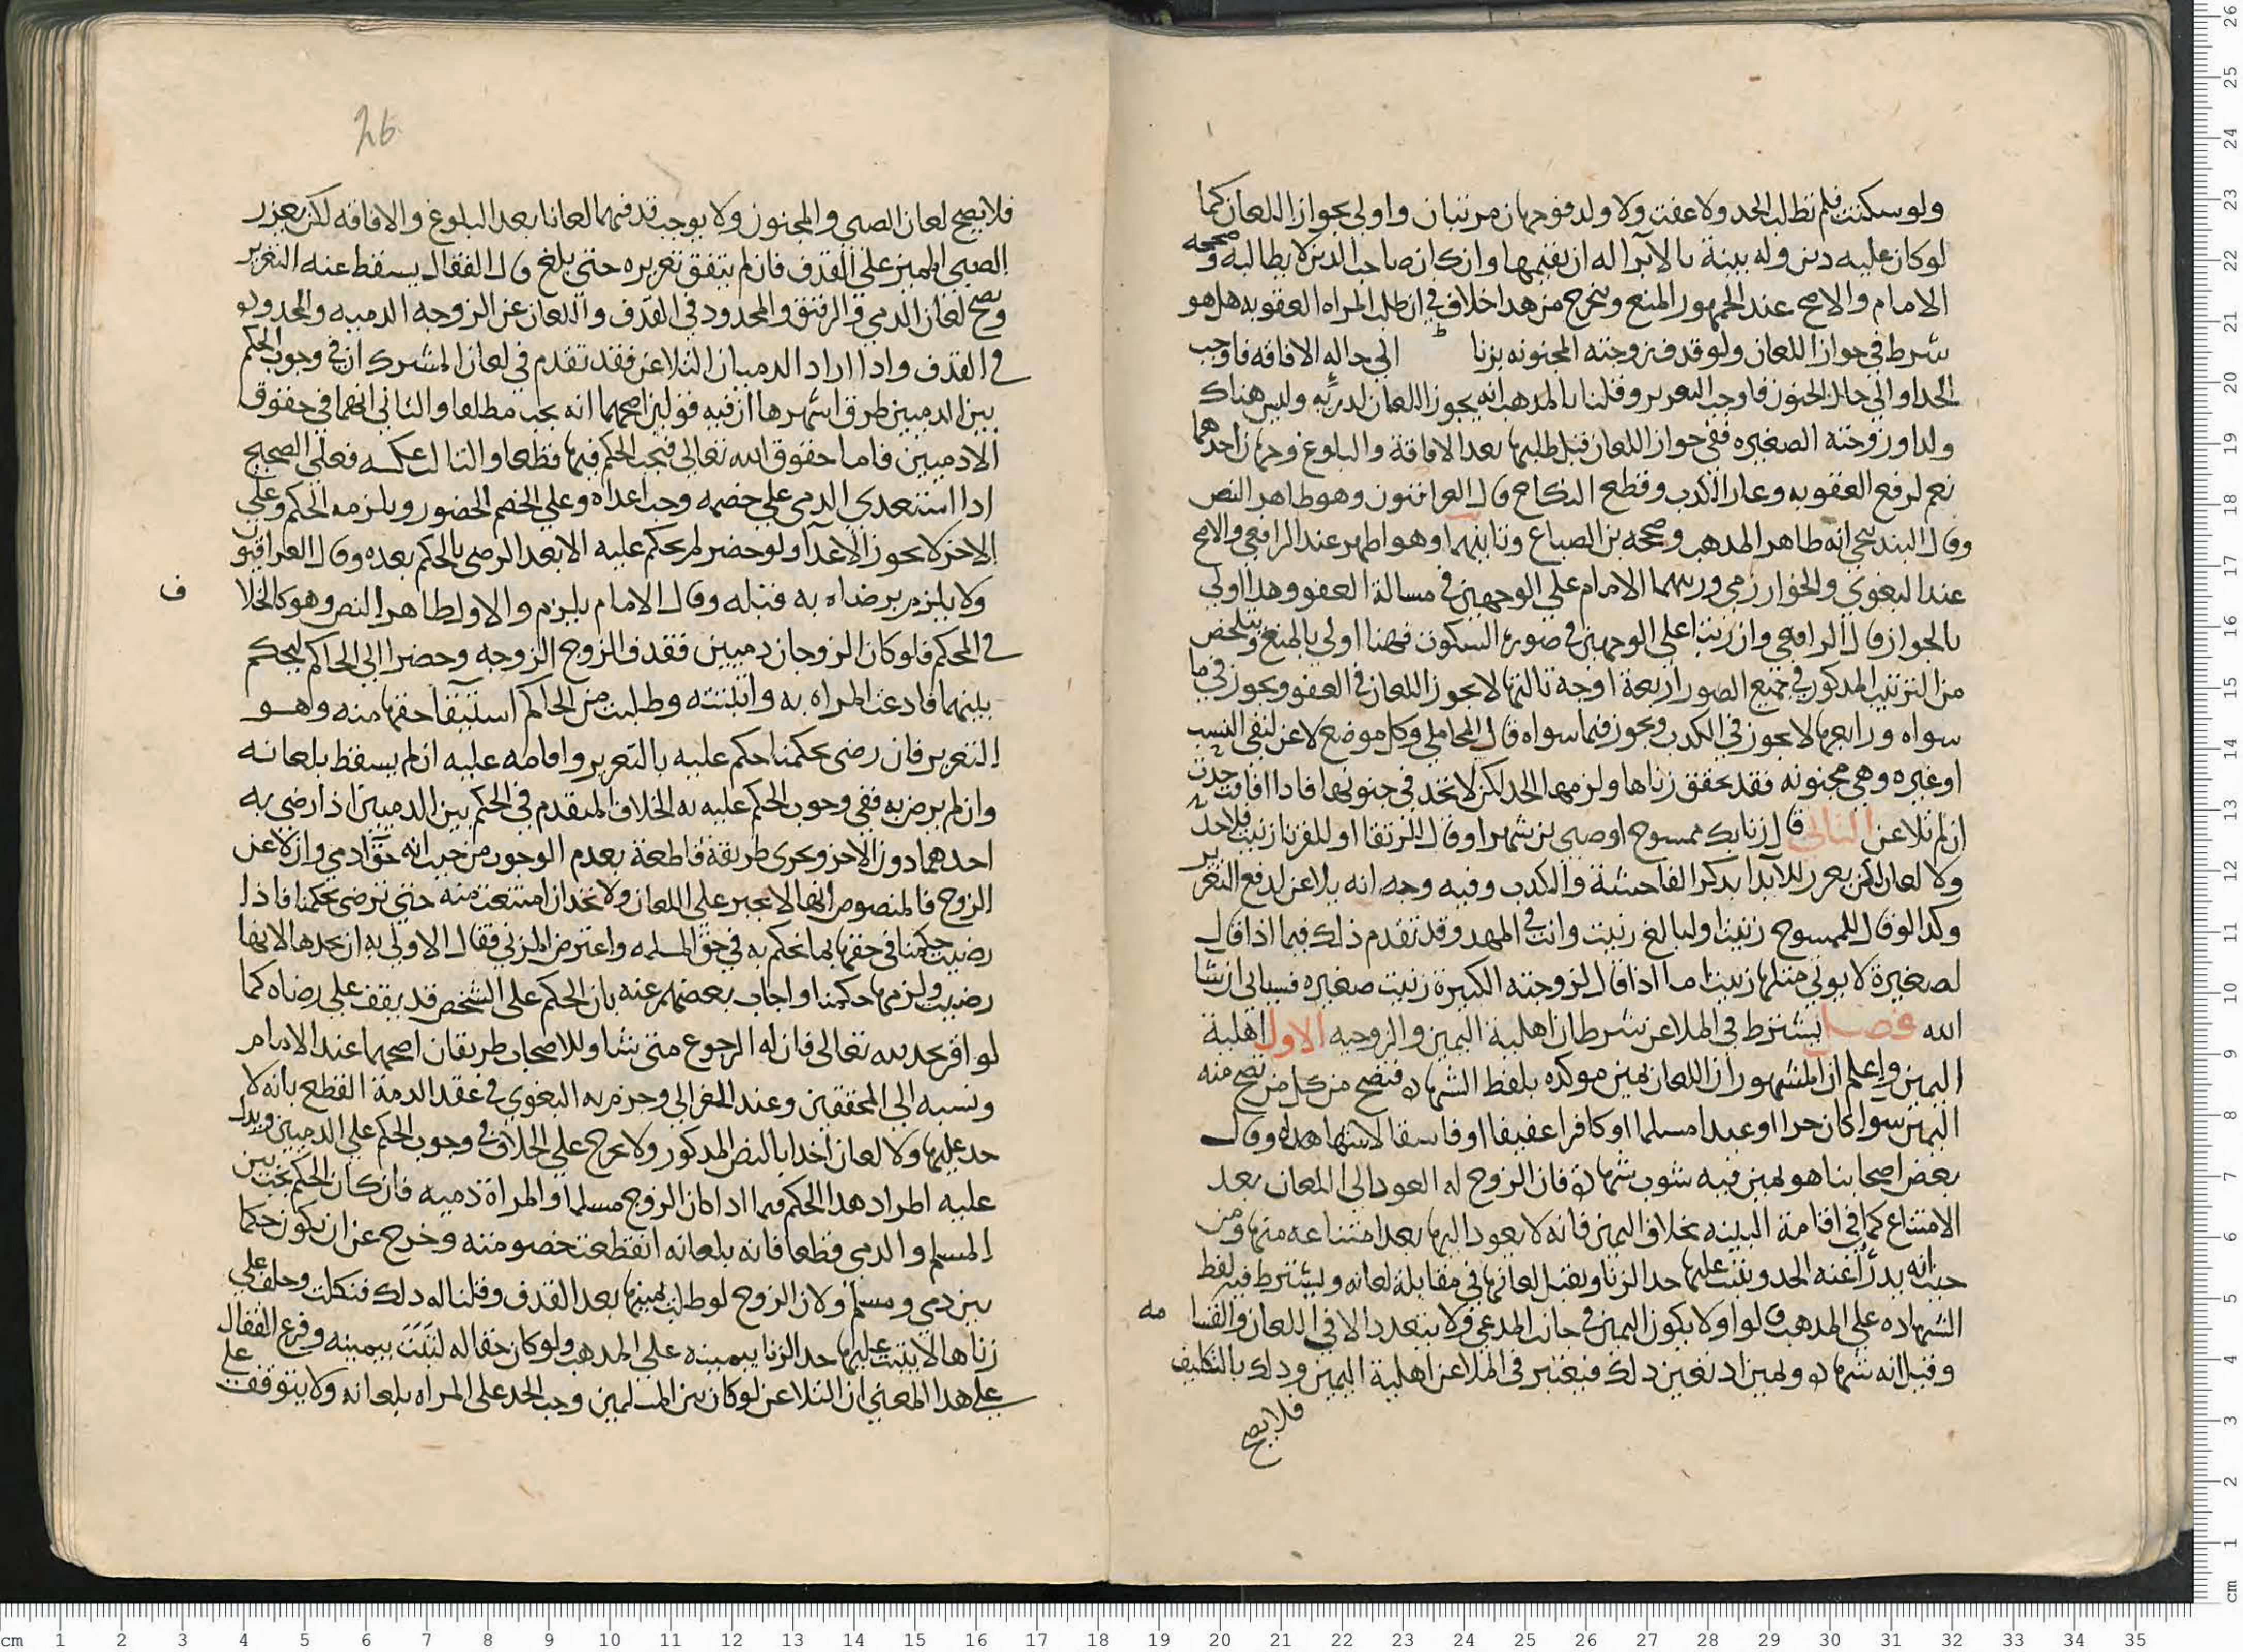 ولو سكتت فلم تطلب الحد ولا عفت ولا ولد فوجهان مرتبان واولى بجواز اللعان كما
لو كان عليه دين وله بينة بالابرا له ان يقيمها وان كان صاحب الدين لا يطالبه وصححه
الامام والاصح عند الجمهور المنع ويخرج من هدا خلاف في ان طلب المراه العقوبه هل هو
شرط في جواز اللعان ولو قدف زوجته المجنونه بزنا الى حاله الافاقه فاوجب
الحد او الى حال الجنون فاوجب التعزير وقلنا بالمدهب انه يجوز اللعان لدريه وليس هناك
ولد او زوجته الصغيره ففي جواز اللعان قبل طلبها بعد الافاقة والبلوغ وجهان احدهما
نعم لرفع العقوبه وعار الكدب وقطع النكاح قال العراقيون وهو ظاهر النص
وقال البندنيجي انه ظاهر المدهب وصححه بن الصباغ وثانيهما وهو اظهر عند الرافعي والاصح
عند البغوي والخوارزمي وربهما الامام على الوجهين في مسالة العفو وهدا اولى
بالجواز قال الرافعي وان رتبا على الوجهين في صورة السكوت فهنا اولى بالمنع ويتلخص
من الترتيب المدكور في جميع الصور اربعة اوجه ثالثها لا يجوز اللعان في العفو ويجوز في ما
سواه ورابعها لا يجوز في الكدب ويجوز فيما سواه قال المحاملي وكل موضع لاعن لنفي النسب
او غيره وهي مجنونه فقد تحقق زناها ولزمها الحد لكن لا تحد في جنونها فادا افاقت حدت
ان لم تلاعن الثاني قال زنا بك ممسوح او صبي بن شهر او قال للرتقا او للقرنا زنيت فلا حد
ولا لعان لكن يعزر للايدا بدكر الفاحشة والكدب وفيه وجه انه يلاعن لدفع التعزير
وكدا لو قال للممسوح زنيت او لبالغ زنيت وانت في المهد وقد تقدم ذلك فيما اذا قال
لصغيرة لا يوتى مثلها زنيت اما اذا قال لزوجته الكبيرة زنيت صغيره فسياتي ان شا
الله فصل يشترط في الملاعن شرطان اهلية اليمين والزوجيه الاول اهلية
اليمين واعلم ان المشهور ان اللعان يمين موكده بلفظ الشهادة فتصح من كل من تصح منه
اليمين سوا كان حرا او عبدا مسلما او كافرا عفيفا او فاسقا لا شهادة له وقال
بعض اصحابنا هو يمين فيه شوب شهادة فان الزوج له العود الى اللعان بعد
الامتناع كما في اقامة البينه بخلاف اليمين فانه لا يعود اليها بعد امتناعه منها ومن
حيث انه يدرا عنه الحد ويثبت عليها حد الزنا ويقبل لعانها في مقابلة لعانه ويشترط فيه لفظ
الشهاده على المدهب قالوا ولا يكون اليمين في جانب المدعي ولا يتعدد الا في اللعان والقسا مه
وقيل انه شهادة ويمين اد تعين دلك فيعتبر في الملاعن اهلية اليمين ودلك بالتكليف
فلا يصح
26
فلا يصح لعان الصبي والمجنون ولا يوجب قدفهما لعانا بعد البلوغ والافاقه لكن يعزر
الصبي المميز على القدف فان لم يتفق تعزيره حتى بلغ قال القفال يسقط عنه التعزير
ويصح لعان الدمي والرقيق والمحدود في القدف واللعان عن الزوجه الدميه والمحدوده
في القدف وادا اراد الدميان التلاعن فقد تقدم في لعان المشرك ان في وجوب الحكم
بين الدميين طرق اشهرها ان فيه قولين اصحهما انه يجب مطلقا والثاني انهما في حقوق
الادميين فاما حقوق الله تعالى فيجب الحكم فيها قطعا والثالث عكسه فعلى الصحيح
ادا استعدى الدمي على خصمه وجب اعداه وعلى الخصم الحضور ويلزمه الحكم وعلى
الاخر لا يجوز الاعدا ولو حضر لم يحكم عليه الا بعد الرضى بالحكم بعده وقال العراقيو
ولا يلزم برضاه به قبله وقال الامام يلزم والاول ظاهر النص وهو كالخلا ف
في المحكم فلو كان الزوجان دميين فقدف الزوج الزوجه وحضرا الى الحاكم ليحكم
بينهما فادعت المراه به واثبتته وطلبت من الحاكم استيفا حقها منه وهو
التعزير فان رضي بحكمنا حكم عليه بالتعزير واقامه عليه ان لم يسقط بلعانه
وان لم يرض به ففي وجوب الحكم عليه به الخلاف المتقدم في الحكم بين الدميين اذا رضي به
احدهما دون الاخر وتجري طريقة قاطعة بعدم الوجوب من حيث انه حق ادمي وان لاعن
الزوج فالمنصوص انها لا تجبر على اللعان ولا تحد ان امتنعت منه حتى ترضى بحكمنا فاذا
رضيت حكمنا في حقها بما نحكم به في حق المسلمه واعترض المزني فقال الاولى به ان يحدها لانها
رضيت ولزمها حكمنا واجاب بعضهم عنه بان الحكم على الشخص قد يقف على رضاه كما
لو اقر بحد لله تعالى فان له الرجوع متى شا وللاصحاب طريقان اصحهما عند الامام
ونسبه الى المحققين وعند الغزالي وجزم به البغوي في عقد الدمة القطع بانه لا
حد عليها ولا لعان اخدا بالنص المدكور ولا يخرج على الخلاف في وجوب الحكم على الدميين ويدل
عليه اطراد هدا الحكم فيما ادا كان الزوج مسلما والمراة دميه فان كان الحكم يجب بين
المسلم والدمي قطعا فانه بلعانه انقطعت خصومته وخرج عن ان يكون حكما
بين دمي ومسلم ولان الزوج لو طلب يمينها بعد القدف وقلنا له دلك فنكلت وحلف على
زناها لا يثبت عليها حد الزنا بيمينه على المدهب ولو كان حقا له لثبت بيمينه وفرع القفال
على هدا المعنى ان التلاعن لو كان بين المسلمين وجب الحد على المراه بلعانه ولا يتوقف على